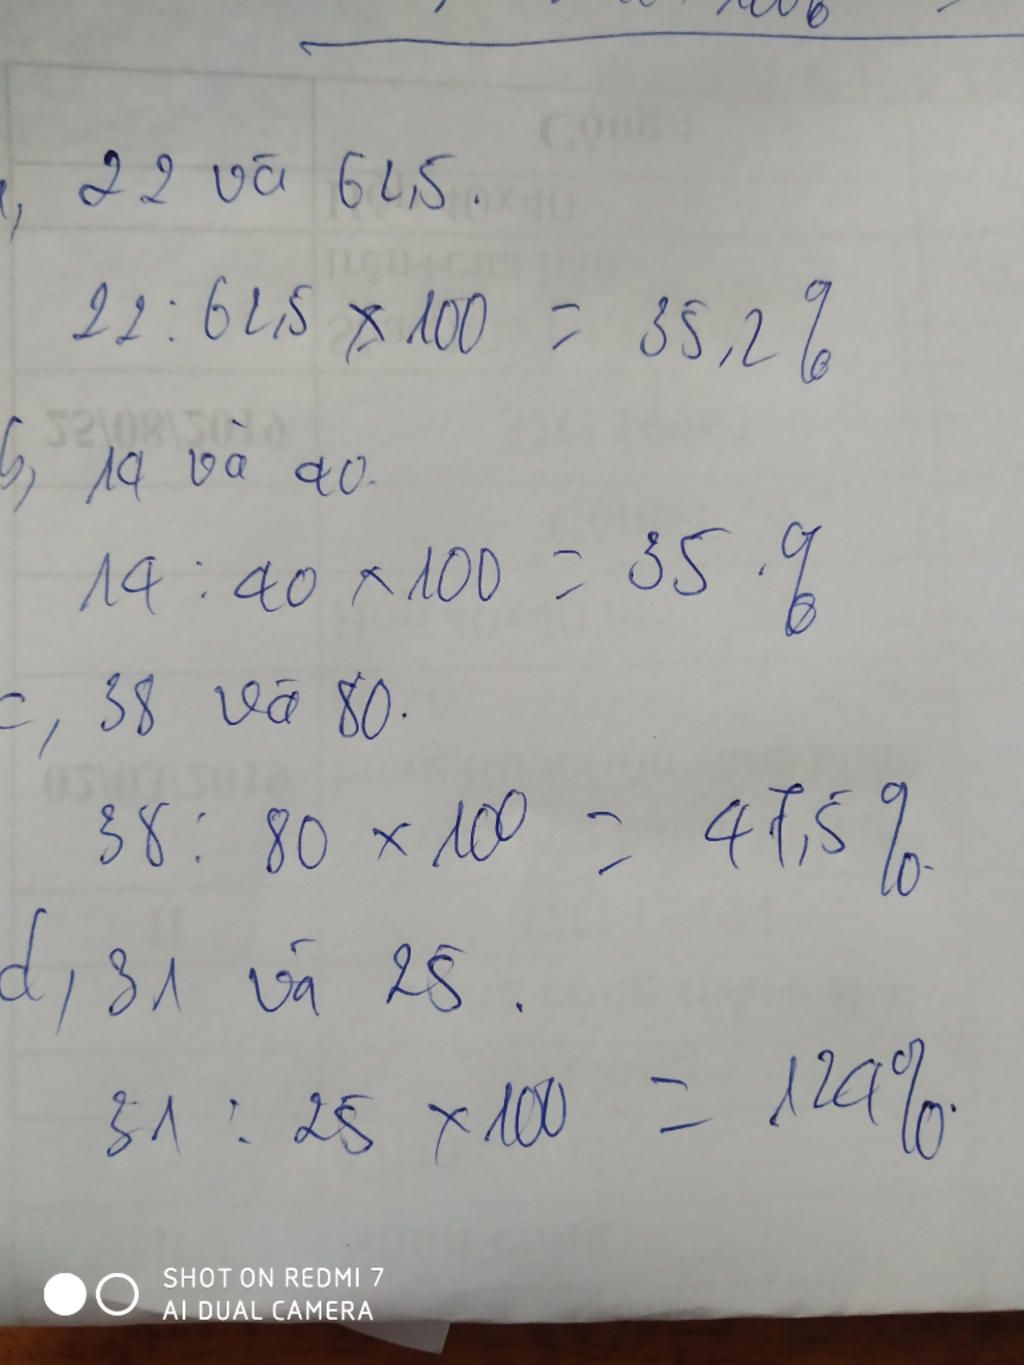 22 và 62,5.
22 : 62,5 × 100 = 35,2%
b, 14 và 40.
14 : 40 × 100 = 35.%
c, 38 và 80.
38 : 80 × 100 = 47,5%.
d, 31 và 25.
31 : 25 × 100 = 124%.
SHOT ON REDMI 7
AI DUAL CAMERA